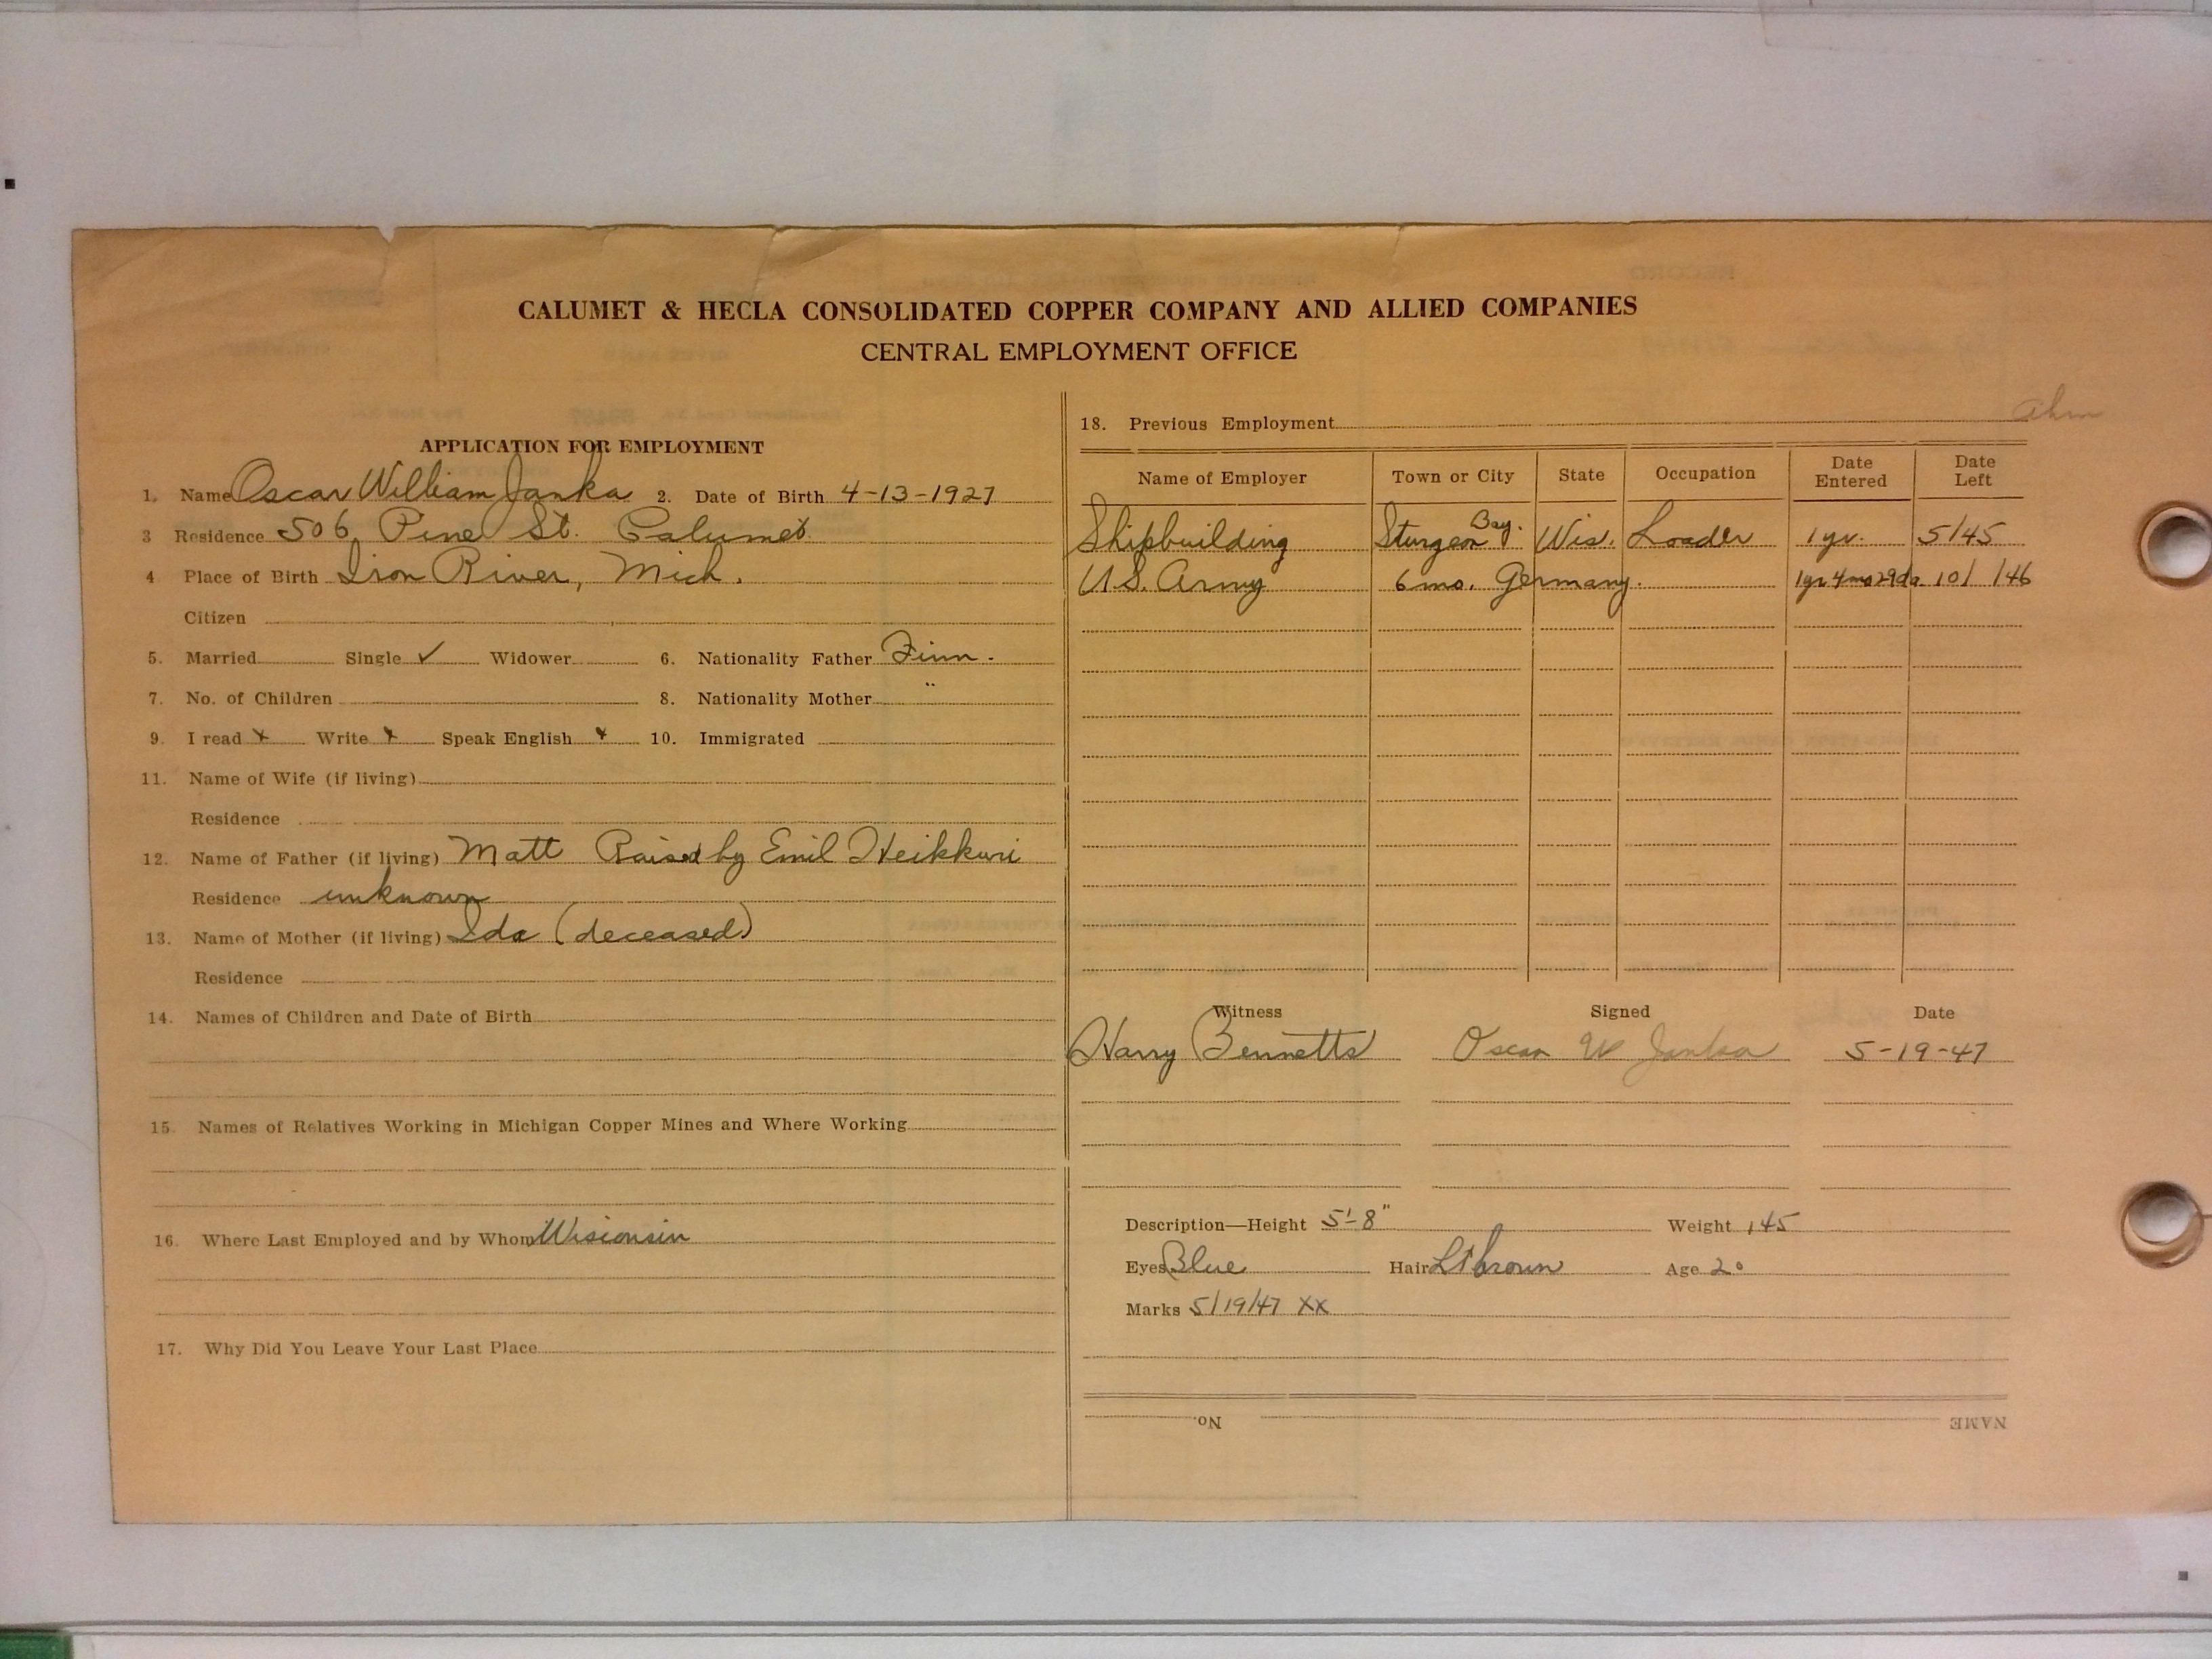 CALUMET & HECLA CONSOLIDATED COPPER COMPANY AND ALLIED COMPANIES
CENTRAL EMPLOYMENT OFFICE
APPLICATION FOR EMPLOYMENT
1. Name Oscar William Janka 2. Date of Birth 4-13-1927
3 Residence 506 Pine St. Calumet
4 Place of Birth Iron River, Mich.
Citizen
5. Married Single ✓ Widower 6. Nationality Father Finn.
7. No. of Children 8. Nationality Mother "
9. I read x Write x Speak English x 10. Immigrated
11. Name of Wife (if living)
Residence
12. Name of Father (if living) Matt Raised by Emil Heikkuri
Residence unknown
13. Name of Mother (if living) Ida (deceased)
Residence
14. Names of Children and Date of Birth
15. Names of Relatives Working in Michigan Copper Mines and Where Working
16. Where Last Employed and by Whom Wisconsin
17. Why Did You Leave Your Last Place
18. Previous Employment
Name of Employer Town or City State Occupation Date Entered Date Left
Shipbuilding Sturgeon Bay. Wis. Loader 1 yr. 5/45
U.S. Army 6 mo. Germany. 1 yr 4 mo 29 da 10/ /46
Witness Signed Date
Harry Bennetts Oscar W Janka 5-19-47
Description—Height 5'-8" Weight 145
Eyes Blue Hair Lt brown Age 20
Marks 5/19/47 XX
No. NAME